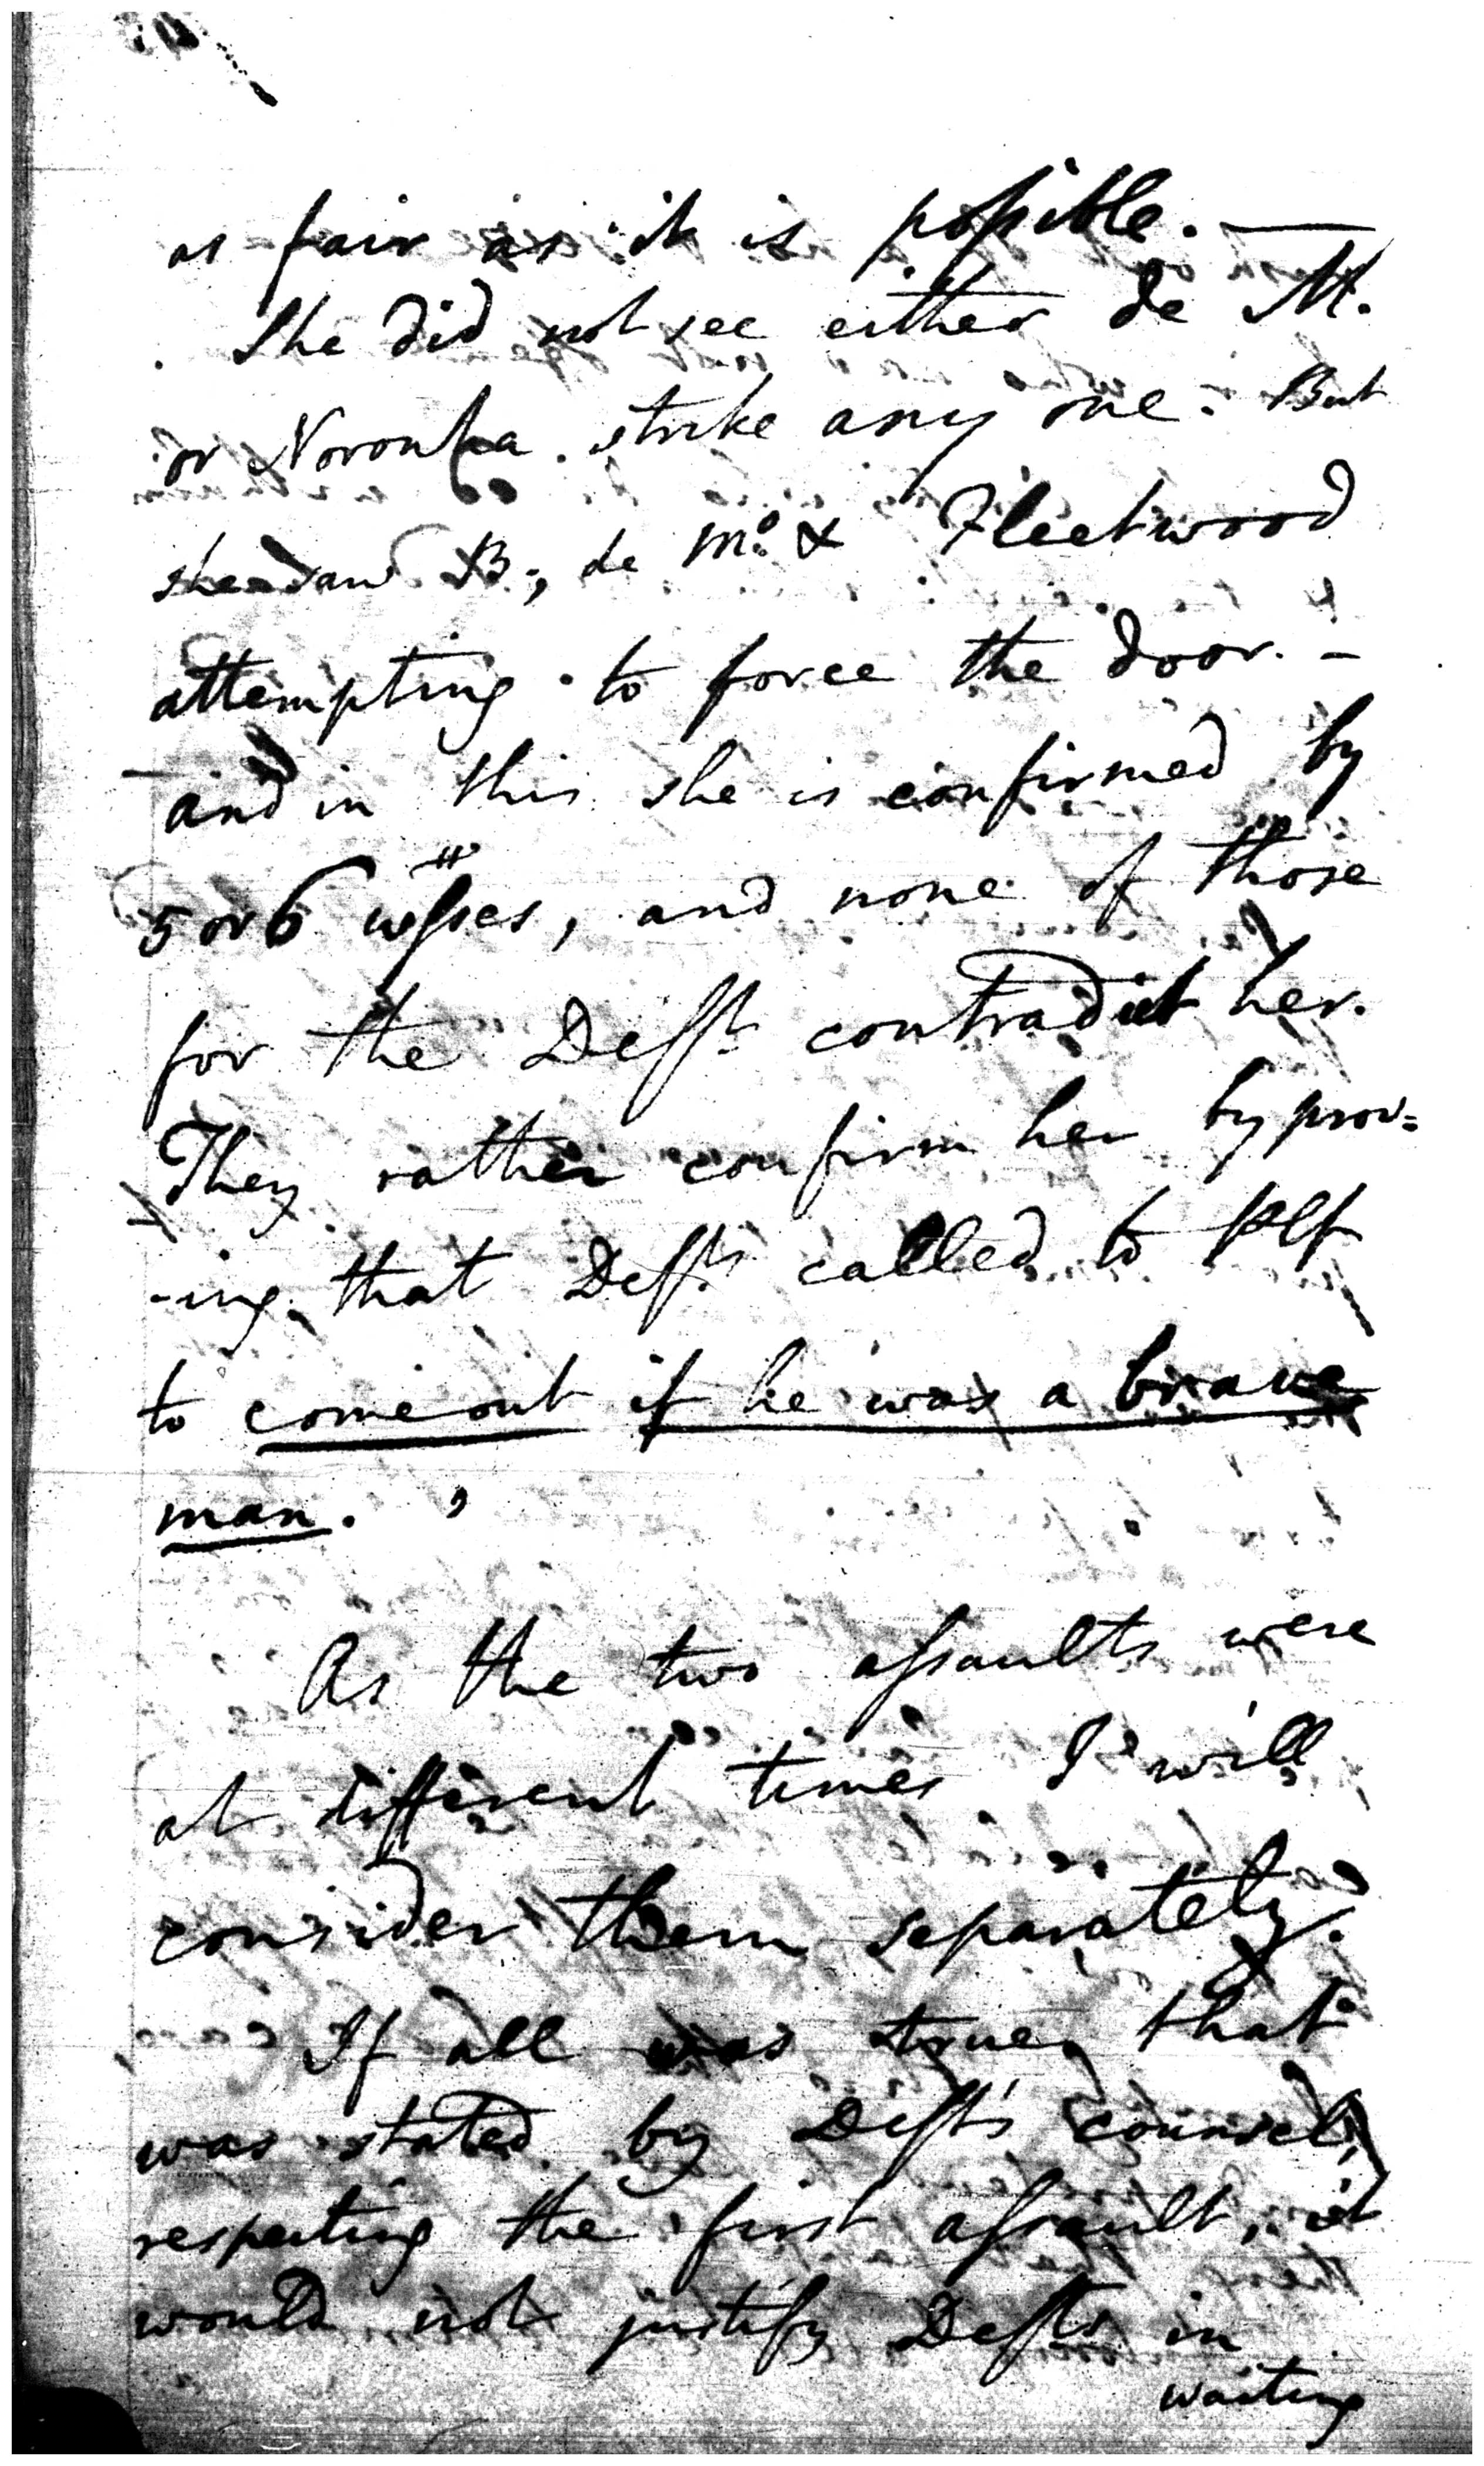 as fair as it is possible. —
She did not see either de M.
or Noronha strike any one. But
she saw B., de Mo. & Fleetwood
attempting to force the door. –
and in this she is confirmed by
5 or 6 wsses, and none of those
for the Defts contradict her.
They rather confirm her by prov=
-ing that Defts called to Plf
to come out if he was a brave
man.
As the two assaults were
at different times I will
consider them separately.
If all was true, that
was stated by Defts' counsel,
respecting the first assault, it
would not justify Defts in
waiting